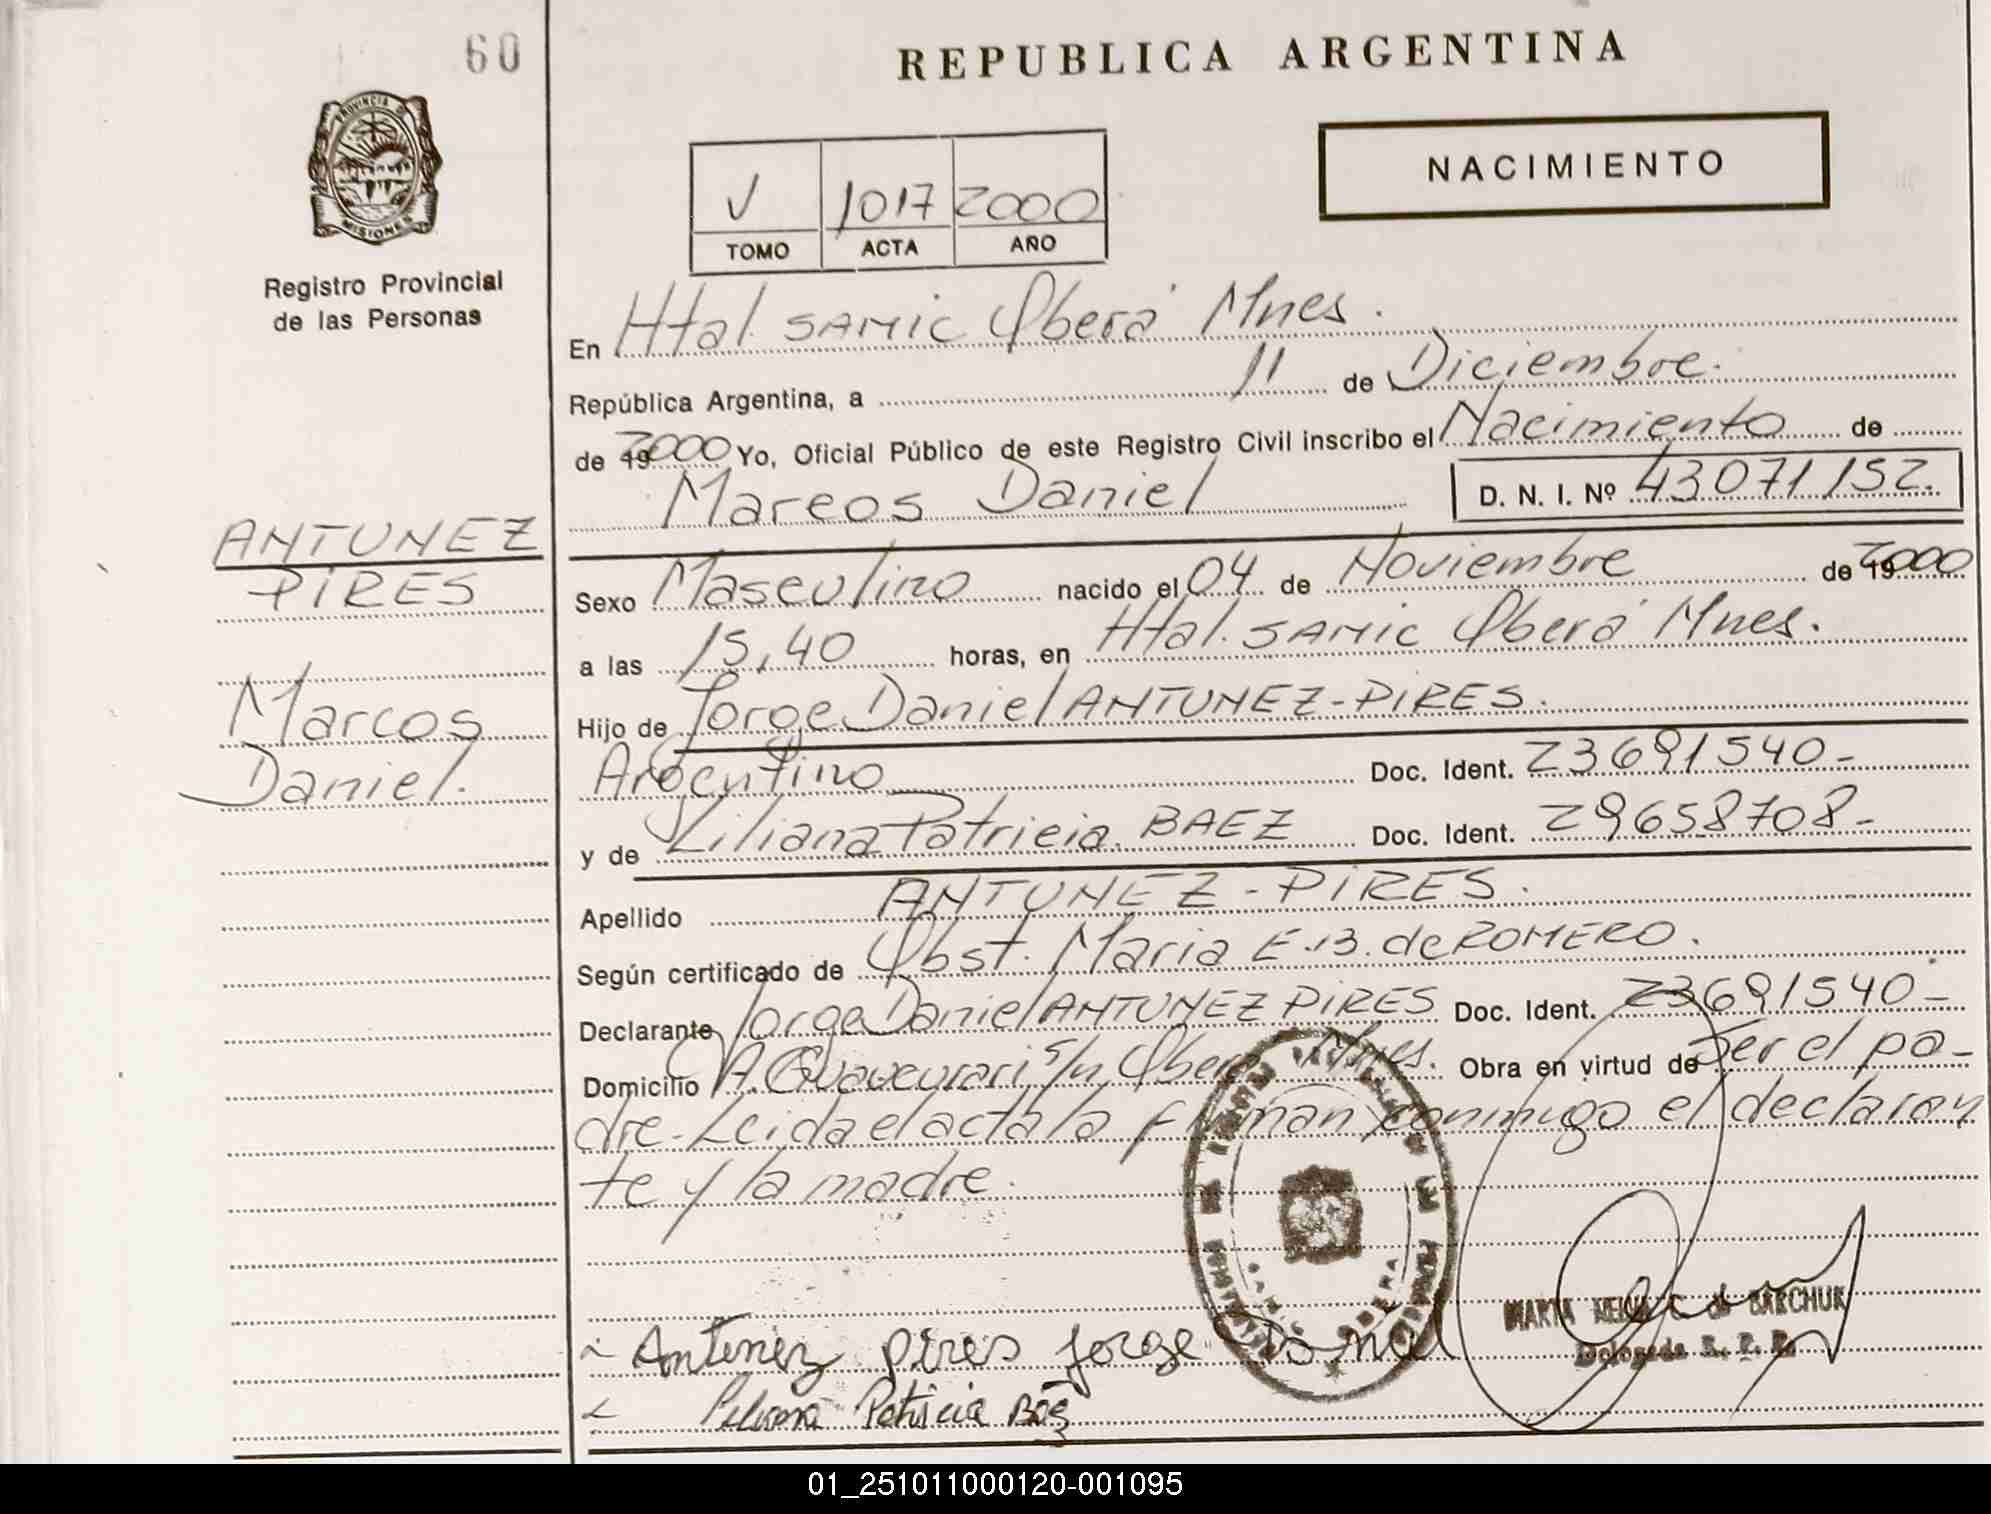 60
REPUBLICA ARGENTINA
NACIMIENTO
PROVINCIA D
MISIONES
V 1017 2000
TOMO ACTA AÑO
Registro Provincial
de las Personas
En Htal. SAMIC Oberá Mnes.
República Argentina, a 11 de Diciembre.
de 192000 Yo, Oficial Público de este Registro Civil inscribo el Nacimiento de
Marcos Daniel D. N. I. Nº 43071152.
ANTUNEZ
PIRES
Marcos
Daniel.
Sexo Masculino nacido el 04 de Noviembre de 192000
a las 15,40 horas, en Htal. SAMIC Oberá Mnes.
Hijo de Jorge Daniel ANTUNEZ-PIRES.
Argentino Doc. Ident. 23691540-
y de Liliana Patricia BAEZ Doc. Ident. 29658708-
Apellido ANTUNEZ-PIRES.
Según certificado de Obst. Maria E.B. de ROMERO.
Declarante Jorge Daniel ANTUNEZ PIRES Doc. Ident. 23691540-
Domicilio s/n Oberá Mnes. Obra en virtud de Ser el pa-
dre-Leida el acta la firman conmigo el declaran
te y la madre.
OBERA
MARTA C de BARCHUK
Delegada R. P. P.
Antunez pires Jorge Daniel
Liliana Patricia Báez
01_251011000120-001095